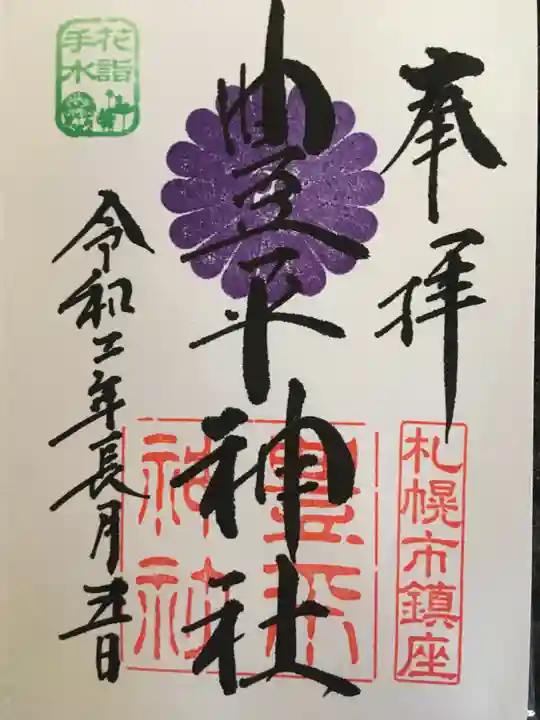 奉拝
札幌市鎮座
豊平神社
豊平神社
花詣
手水
令和二年長月五日